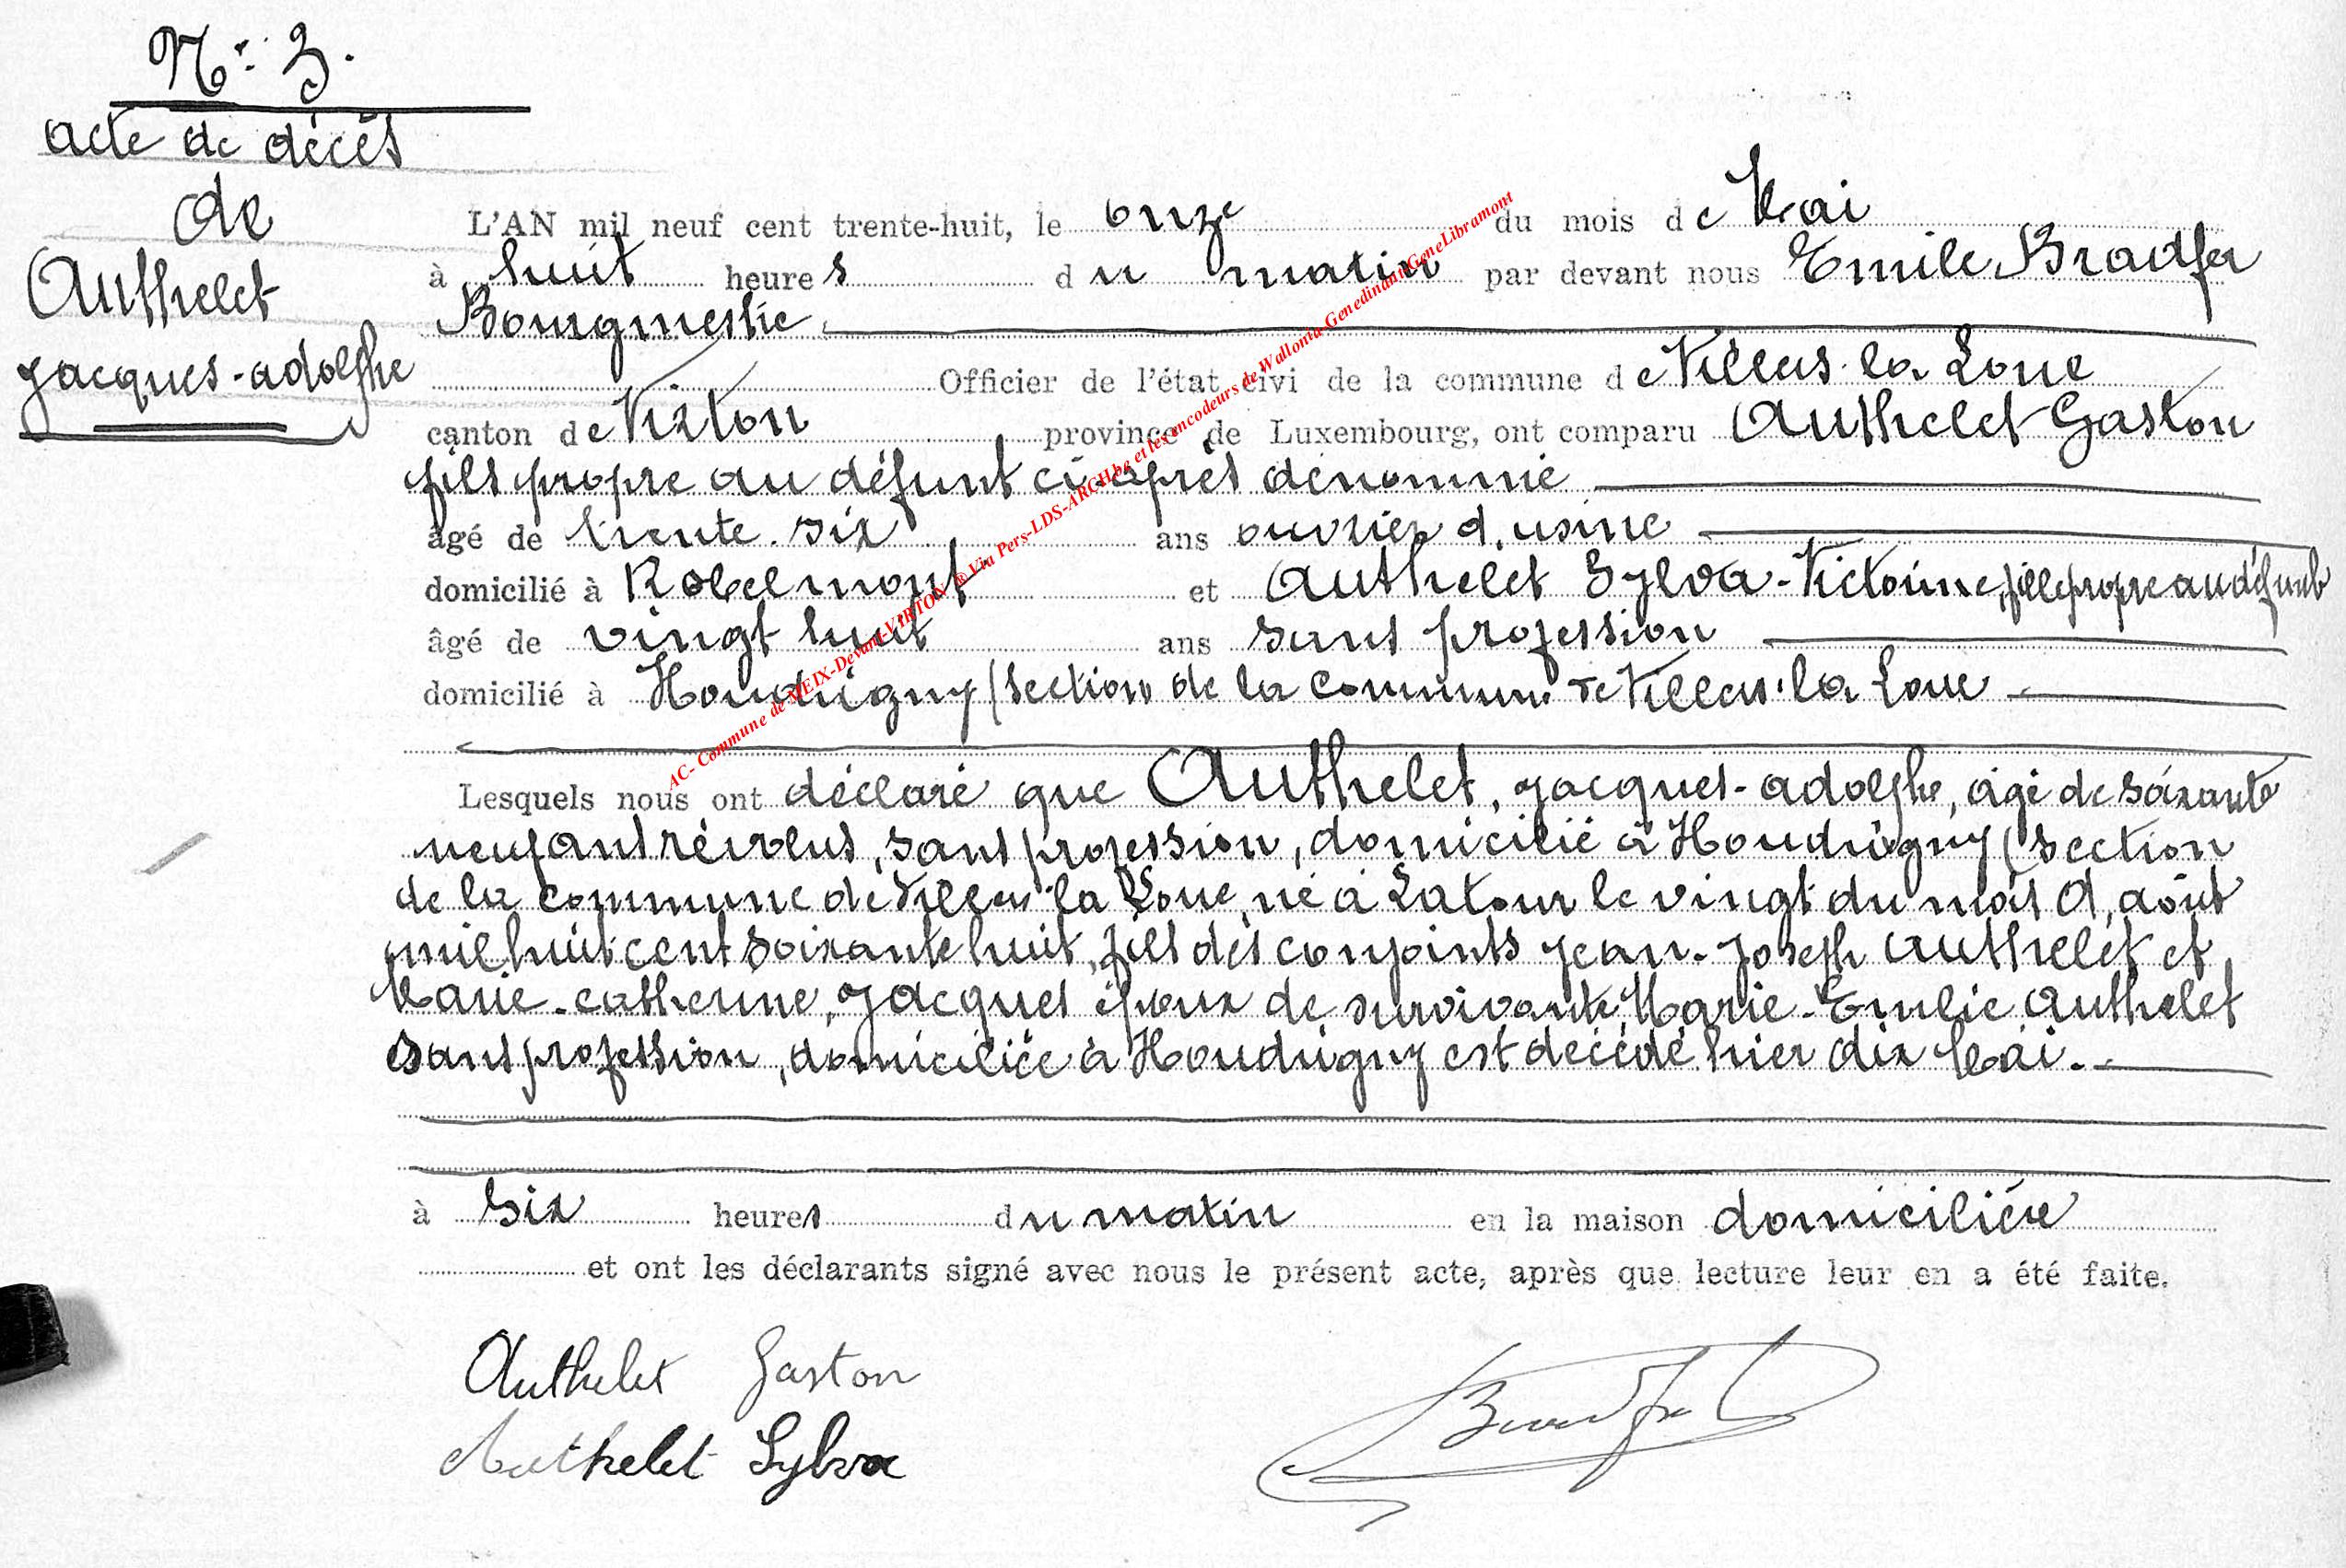 N° 3.
acte de décès
de
Authelet
Jacques-adolphe
L'AN mil neuf cent trente-huit, le onze du mois de Mai
à huit heures du matin par devant nous Emile Bradfer
Bourgmestre
Officier de l'état civi de la commune de Villers-la Loue
canton de Virton province de Luxembourg, ont comparu Authelet Gaston
fils propre au défunt ci-après dénommé
âgé de trente-six ans ouvrier d'usine
domicilié à Robelmont et Authelet Sylva-Victorine, fille propre au défunt
âgé de vingt huit ans sans profession
domicilié à Houdrigny (section de la commune de Villers-la Loue
Lesquels nous ont déclaré que Authelet, Jacques-adolphe, âgé de soixante
neuf ans révolus, sans profession, domicilié à Houdrigny (section
de la commune de Villers-la Loue, né à Latour le vingt du mois d'août
mil huit cent soixante huit, fils des conjoints Jean-Joseph Authelet et
Marie-catherine, Jacques époux de survivante Marie-Emilie Authelet
sans profession, domiciliée à Houdrigny est décédé hier dix Mai.
à six heures du matin en la maison domicilière
et ont les déclarants signé avec nous le présent acte, après que lecture leur en a été faite.
Authelet Gaston
Authelet Sylva
Bradfer
AC- Commune de MEIX-Devant-VIRTON ®Via Pers-LDS-ARCH be et les encodeurs de Wallonia-Genedinant-GeneLibramont